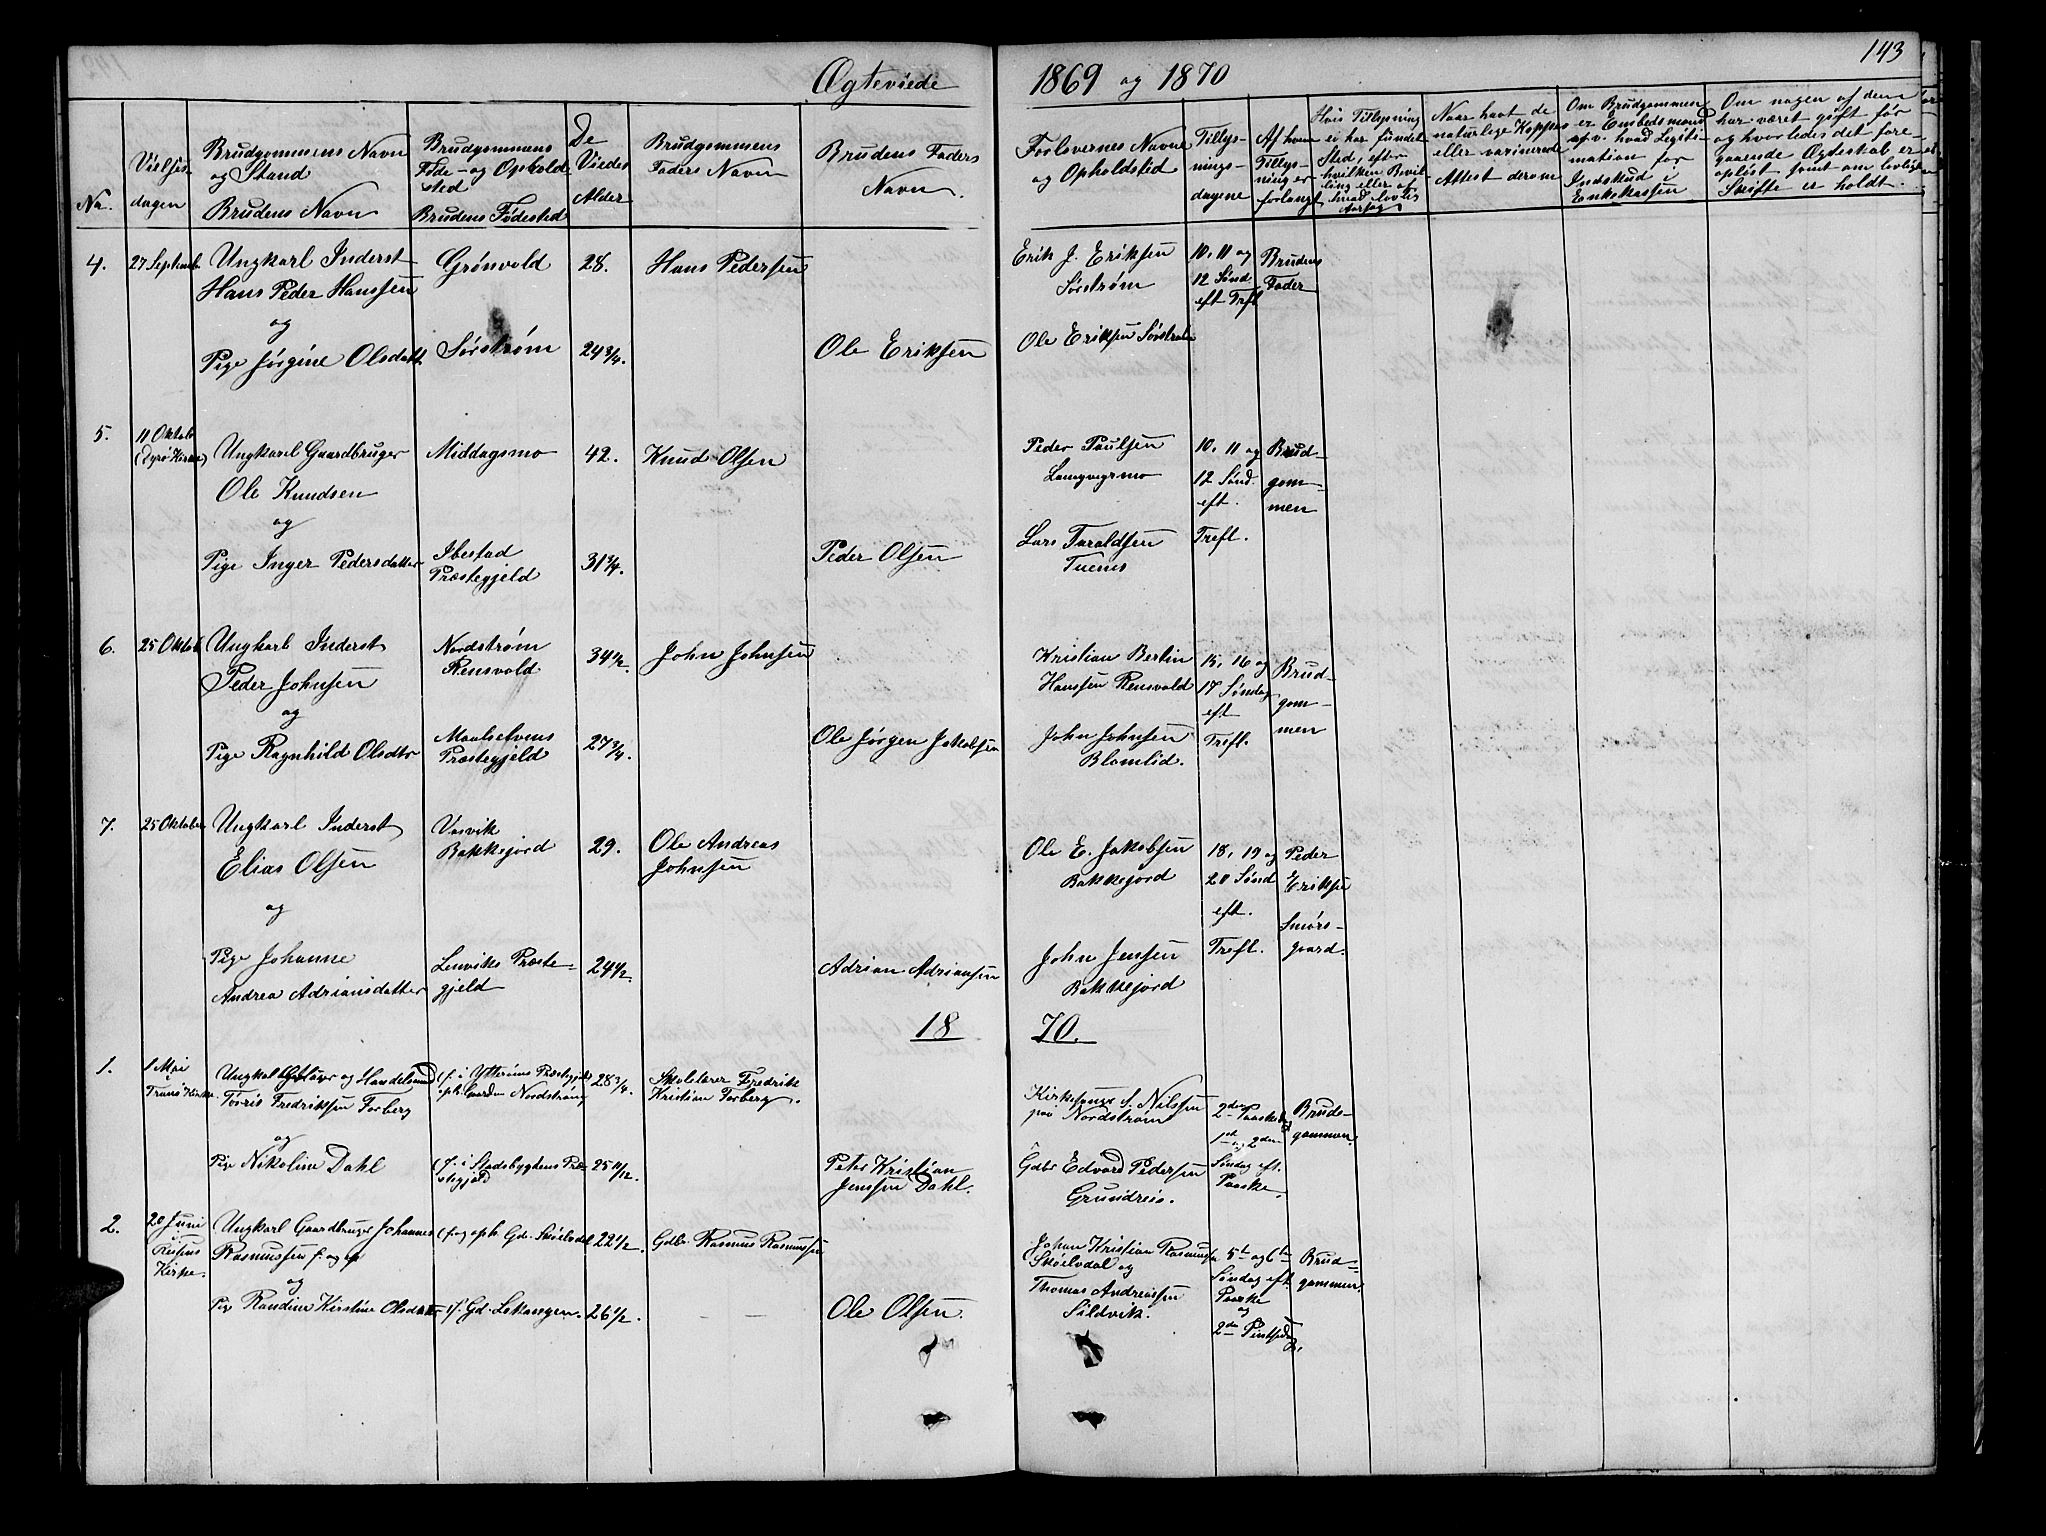 143
Ægteviede 1869 og 1870
No.
Vielses-
dagen
Brudgommens Navn
og Stand
Brudens Navn
Brudgommens
Føde- og Opholds
sted
Brudens Fødested
De
Viedes
Alder
Brudgommens
Faders Navn
Brudens Faders
Navn.
Forlovernes Navne
og Opholdsted
Tillys-
nings-
dagene
Af hvem
Tillys-
ning er
forlangt
Hvis Tillysning
ei har fundet
Sted, efter
hvilken Bevil-
ling eller af
hvad lovlig
Aarsag
Naar havt de
naturlige Kopper
eller vaxinerede
Attest derom
Om Brudgommen
er Embedsmand
hvad Legiti-
mation for
Indskud i
Enkekassen
Om nogen af dem
har været gift før
og hvorledes det fore-
gaaende Ægteskab er
opløst samt om lovligt
Skifte er holdt.
4.
27 Septemb.
Ungkarl Inderst
Hans Peder Hanssen
og
Pige Jørgine Olsdatt.
Grønvold
Sørstrøm
28.
24 3/4.
Hans Pedersen
Ole Eriksen
Erik J. Eriksen
Sørstrøm
Ole Eriksen Sørstrøm
10, 11 og
12 Sønd.
eft Tref.
Brudens
Fader
5.
11 Oktob.
(Dyrø Kirke)
Ungkarl Gaardbruger
Ole Knudsen
og
Pige Inger Pedersdatter
Middagsmo
Ibestad
Præstegjeld
42.
31 3/4.
Knud Olsen
Peder Olsen
Peder Paulsen
Lars Taraldsen
10, 11 og
12 Sønd.
eft.
Treft.
Brud-
gom-
men
6.
25 Oktob.
Ungkarl Inderst
Peder Johnsen
og
Pige Ragnhild Olsdtr
Nordstrøm
Rensvold
Maalselvens
Præstegjeld
34 1/2.
27 3/4.
John Johnsen
Ole Jørgen Jakobsen
Kristian Bertin
Hanssen Rensvold
John Johnsen
Blomlid.
15, 16 og
17 Søndag
eft
Treft.
Brud-
gom-
men
7.
25 Oktober
Ungkarl Inderst
Elias Olsen
og
Pige Johanne
Andrea Adriansdatter
Vasvik
Bakkejord
Lenviks Præste-
gjeld
29.
24 1/2.
Ole Andreas
Johnsen
Adrian Adriansen
Ole E. Jakobsen
Bakkejord
John Jensen
Bakkejord
18, 19 og
20 Sønd
eft.
Treft.
Peder
Eriksen
Smørs-
gaard.
1870.
1.
1 Mai
i
Tranø Kirke
Ungkarl og Handelsmand
Tørris Fredriksen Forberg
og
Pige Nikoline Dahl
f. i Ytterøens Præstegjeld
oph. Gaarden Nordstrøm
(f. i Stadsbygdens Præ-
stegjeld
28 3/4.
25 11/12.
Skolelærer Fredrik
Kristian Forberg.
Peter Kristian
Jenssen Dahl.
Kirkesanger S. Nilssen
paa Nordstrøm
Gdbr Edvard Pedersen
Grundreis.
2den Paaskedag
1ste og 2den
Søndag eft.
Paaske.
Brud-
gommen.
2.
20 Juni
i
Kirke.
Ungkarl Gaardbruger Johannes
Rasmussen f. og op
og
Pige Randine Kirstine Olsdatter
(f. og oph. Gd.
f. Gd. Lekangen.
22 1/2.
26 1/2.
Gdbr. Rasmus Rasmussen
— —
Ole Olsen.
Johan Kristian Rasmussen
Skøelvdal og
Thomas Andreassen
Sildvik.
5te og 6te
Søndag eft.
Paaske
og
2den Pintsedag.
Brud-
gommen.